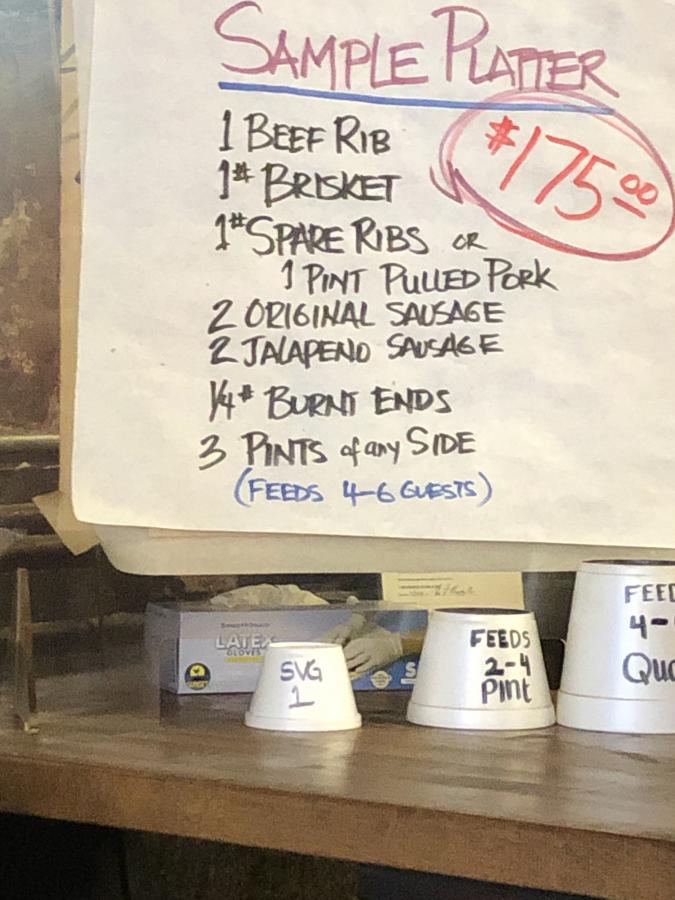 SAMPLE PLATTER
$175.00
1 BEEF RIB
1# BRISKET
1# SPARE RIBS OR
1 PINT PULLED PORK
2 ORIGINAL SAUSAGE
2 JALAPENO SAUSAGE
1/4# BURNT ENDS
3 PINTS of any SIDE
(FEEDS 4-6 GUESTS)
LATEX
GLOVES
SVG
1
FEEDS
2-4
Pint
FEED
4-
Qua